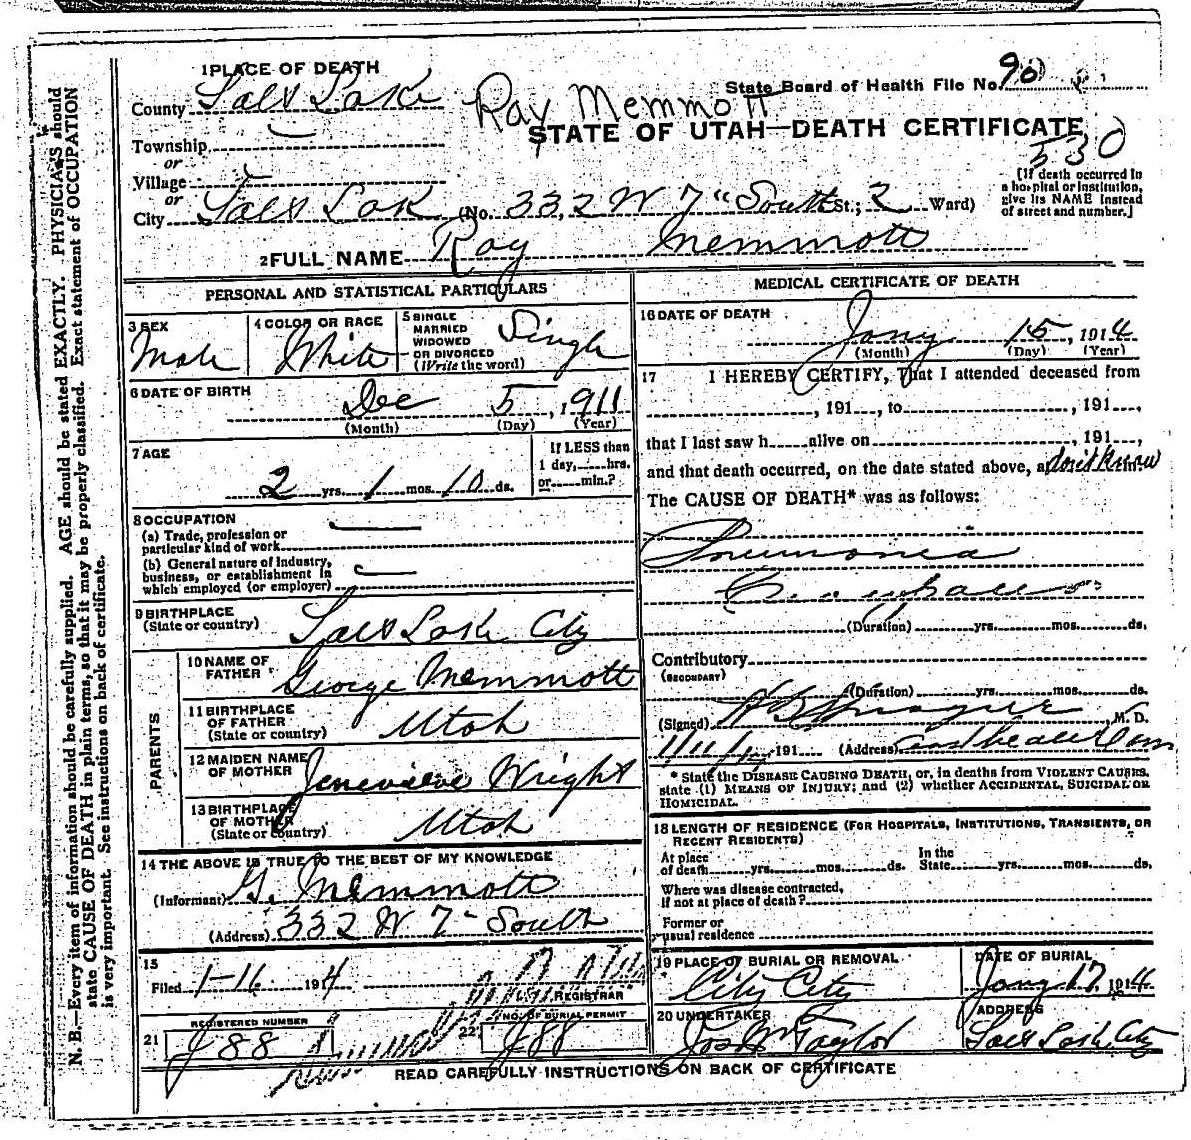 1 PLACE OF DEATH
State Board of Health File No. 90
County Salt Lake
Ray Memmott
STATE OF UTAH—DEATH CERTIFICATE
530
Township
or
Village
or
City Salt Lake (No. 332 W 7" South St.; 2 Ward)
[If death occurred in
a hospital or institution,
give its NAME instead
of street and number.]
2 FULL NAME Ray Memmott
PERSONAL AND STATISTICAL PARTICULARS
3 SEX Male
4 COLOR OR RACE White
5 SINGLE
MARRIED
WIDOWED
OR DIVORCED
(Write the word)
Single
6 DATE OF BIRTH
Dec 5, 1911
(Month) (Day) (Year)
7 AGE
2 yrs. 1 mos. 10 ds.
If LESS than
1 day, hrs.
or min.?
8 OCCUPATION
(a) Trade, profession or
particular kind of work
(b) General nature of industry,
business, or establishment in
which employed (or employer)
9 BIRTHPLACE
(State or country) Salt Lake City
PARENTS
10 NAME OF
FATHER George Memmott
11 BIRTHPLACE
OF FATHER
(State or country) Utah
12 MAIDEN NAME
OF MOTHER Jenevieve Wright
13 BIRTHPLACE
OF MOTHER
(State or country) Utah
14 THE ABOVE IS TRUE TO THE BEST OF MY KNOWLEDGE
(Informant) G. Memmott
(Address) 332 W 7" South
15
Filed 1-16 1914
REGISTRAR
REGISTERED NUMBER
21 J 88
NO. OF BURIAL PERMIT
22 J 88
MEDICAL CERTIFICATE OF DEATH
16 DATE OF DEATH
Jany 15, 1914
(Month) (Day) (Year)
17 I HEREBY CERTIFY, That I attended deceased from
, 191 , to , 191 ,
that I last saw h alive on , 191 ,
and that death occurred, on the date stated above, at don't know m.
The CAUSE OF DEATH* was as follows:
Pneumonia
(Duration) yrs. mos. ds.
Contributory
(SECONDARY)
(Duration) yrs. mos. ds.
(Signed) , M. D.
191 (Address)
* State the DISEASE CAUSING DEATH, or, in deaths from VIOLENT CAUSES,
state (1) MEANS OF INJURY; and (2) whether ACCIDENTAL, SUICIDAL OR
HOMICIDAL.
18 LENGTH OF RESIDENCE (FOR HOSPITALS, INSTITUTIONS, TRANSIENTS, OR
RECENT RESIDENTS)
At place
of death yrs. mos. ds.
In the
State yrs. mos. ds.
Where was disease contracted,
if not at place of death?
Former or
usual residence
19 PLACE OF BURIAL OR REMOVAL
City Cety
DATE OF BURIAL
Jany 17, 1914
20 UNDERTAKER
Jos Wm Taylor
ADDRESS
Salt Lake City
READ CAREFULLY INSTRUCTIONS ON BACK OF CERTIFICATE
N. B.—Every item of information should be carefully supplied. AGE should be stated EXACTLY. PHYSICIANS should
state CAUSE OF DEATH in plain terms, so that it may be properly classified. Exact statement of OCCUPATION
is very important. See instructions on back of certificate.